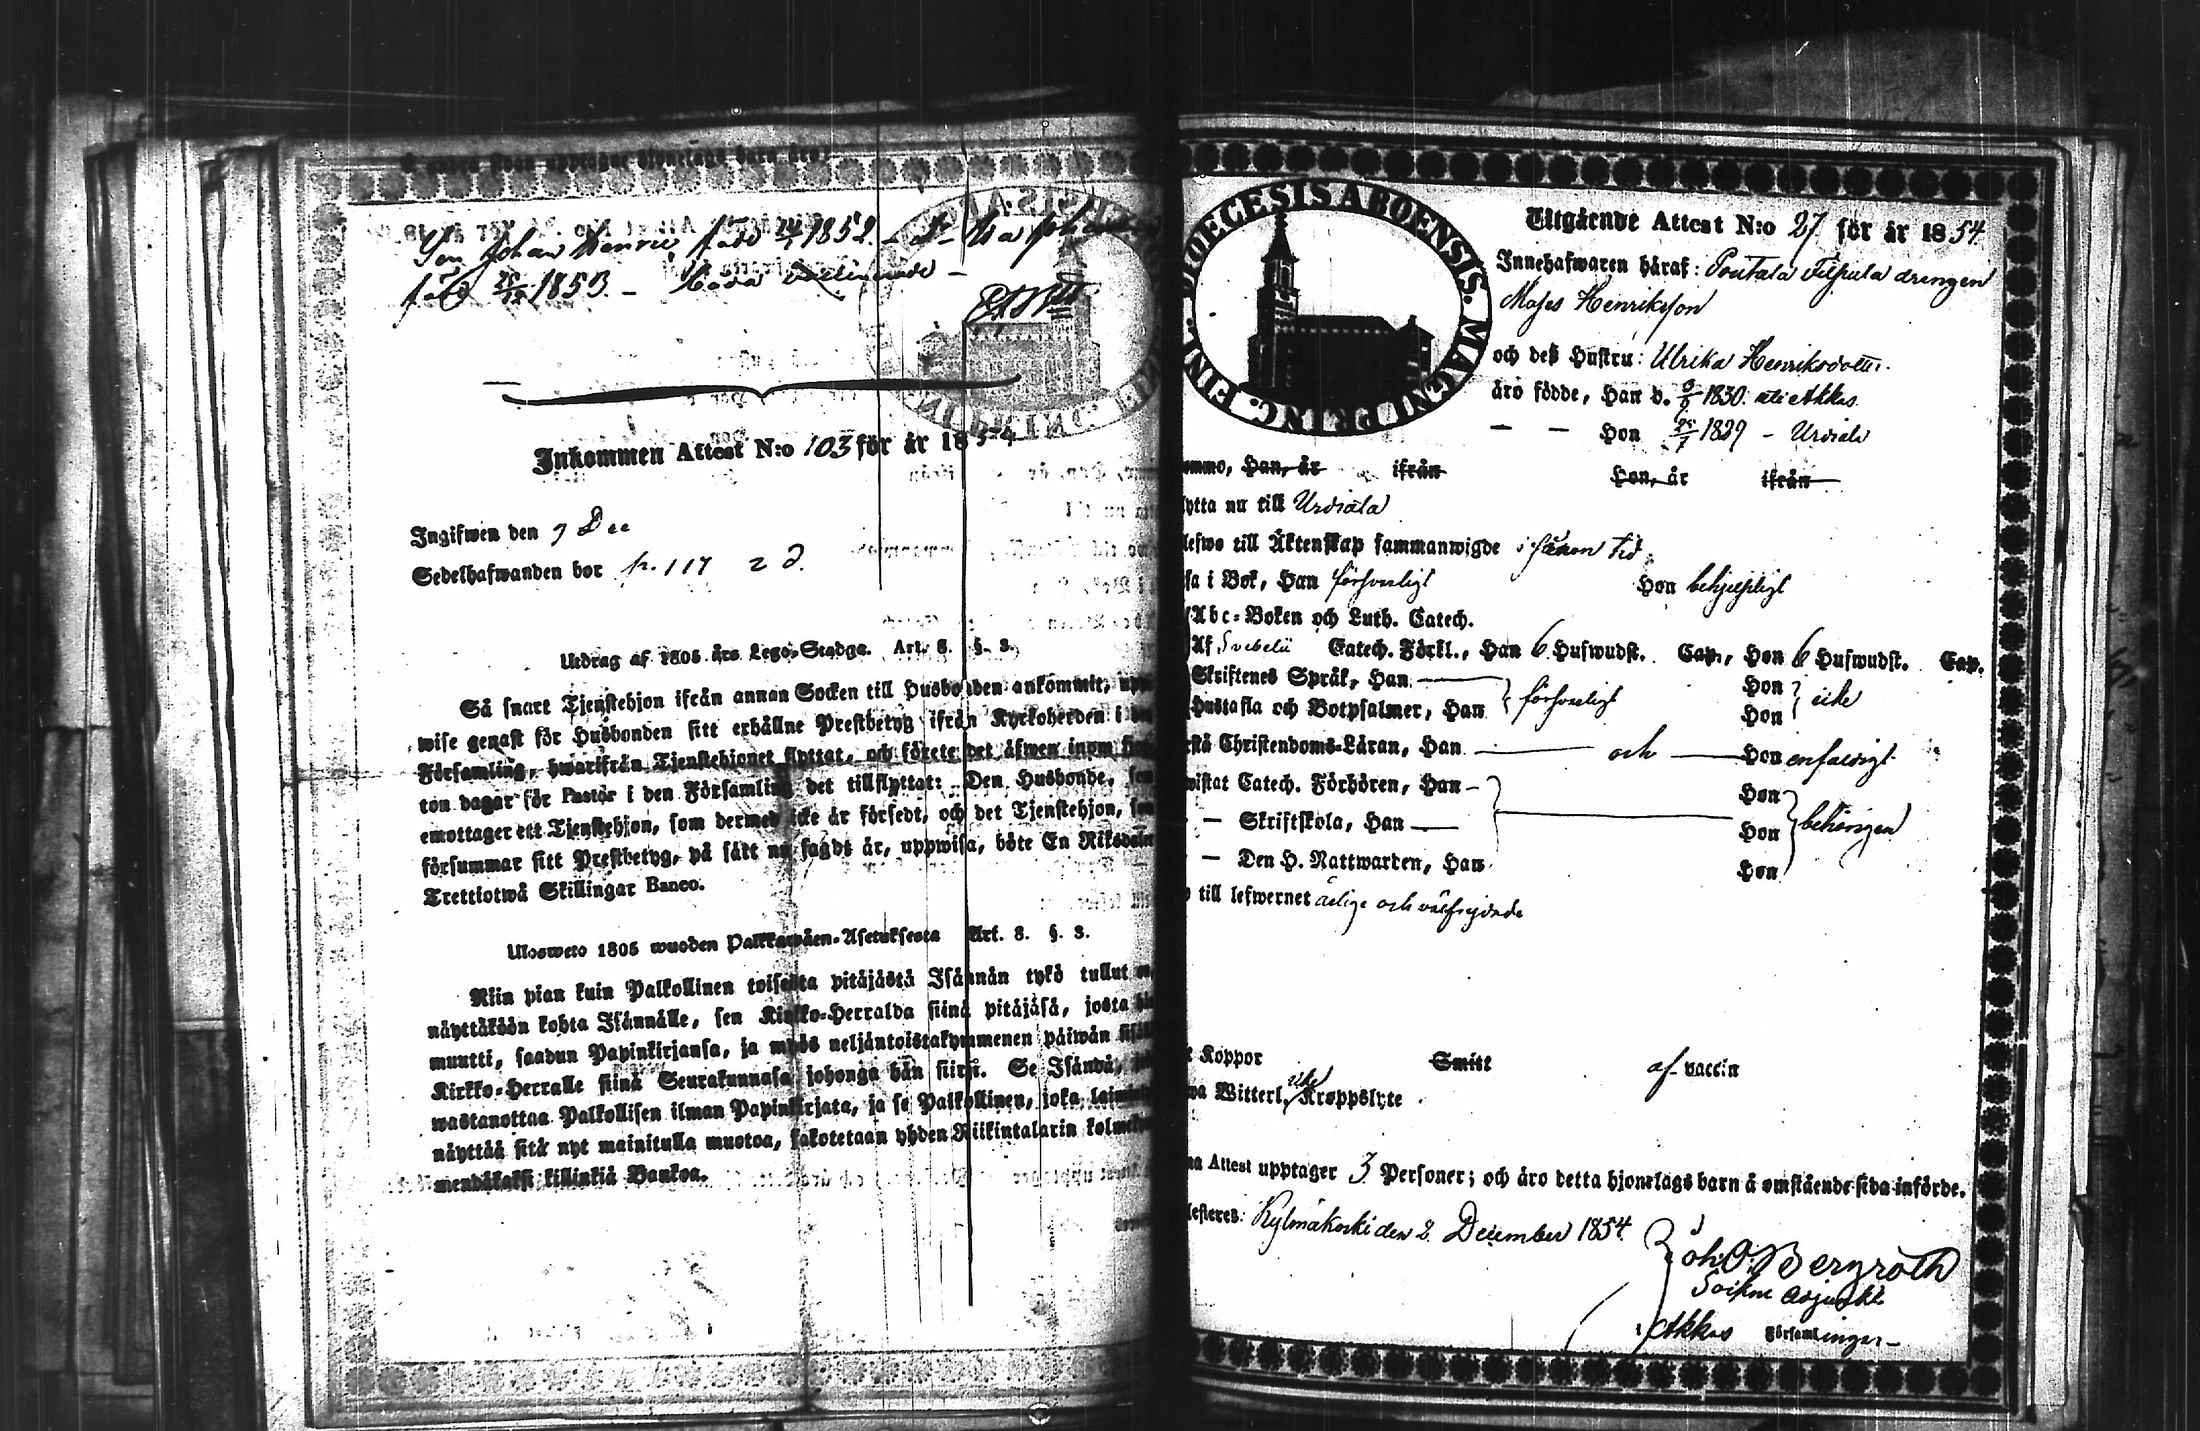 Son Johan Henric född 24/1 1852. – dr Ida Joha
född 26/12 1853. – båda vaccinerade –
Inkommen Attest N:o 103 för år 1854
Ingifwen den 9 Dec
Sedelhafwanden bor p. 117
Utdrag af 1805 års Lego-Stadga. Art. 8. §. 3.
Så snart Tjenstehjon ifrån annan Socken till Husbonden ankommit, upp
wise genast för Husbonden sitt erhållne Prestbetyg ifrån Kyrkoherden i den
Församling, hwarifrån Tjenstehjonet flyttat, och förete det äfwen inom fjor
ton dagar för Pastor i den Församling det tillflyttat: Den Husbonde, som
emottager ett Tjenstehjon, som dermed icke är försedt, och det Tjenstehjon, som
försummar sitt Prestbetyg, på sätt nu sagdt är, uppwisa, böte En Riksdaler
Trettiotwå Skillingar Banco.
Ulosweto 1805 wuoden Palkkawäen-Asetuksesta Art. 8. §. 3.
Niin pian kuin Palkollinen toisesta pitäjästä Isännän tykö tullut on,
näyttäköön kohta Isännälle, sen Kirkko-Herralda siinä pitäjäsä, josta hän
muutti, saadun Papinkirjansa, ja myös neljäntoistakymmenen päiwän sisällä
Kirkko-Herralle siinä Seurakunnasa johonga hän siirsi. Se Isändä, joka
wastanottaa Palkollisen ilman Papinkirjata, ja se Palkollinen, joka laimin
näyttää sitä nyt mainitulla muotoa, sakotetaan yhden Riikintalarin kolmeky
mendäkaksi killinkiä Bankoa.
DIOECESIS ABOENSIS. MAGNI PRINC. FINL.
Utgående Attest N:o 27 för år 1854.
Innehafwaren häraf: Pouttala Filpula drengen
Moses Henriksson
och deß Hustru: Ulrika Henriksdotter.
äro födde, Han d. 9/9 1830. uti Akkas.
– – Hon 25/7 1829 – Urdiala
ommo, Han, år ifrån Hon, år ifrån
lytta nu till Urdiala
lefwo till Äktenskap sammanwigde i sinom tid.
sa i Bok, Han försvarligt Hon behjelpligt
Abc-Boken och Luth. Catech.
Af Svebelii Catech. Förkl., Han 6 Hufwudst. Cap., Hon 6 Hufwudst. Cap.
Skriftenes Språk, Han Hon
försvarligt icke
Hustafla och Botpsalmer, Han Hon
rstå Christendoms-Läran, Han och Hon enfaldigt
wistat Catech. Förhören, Han Hon
– Skriftskola, Han Hon behörigen
– Den H. Nattwarden, Han Hon
till lefwernet ärlige och välfrejdade
t Koppor Smitt af vaccin
wa Witterl. icke Kroppslyte
na Attest upptager 3 Personer; och äro detta hjonelags barn å omstående sida införde.
testeres: Kylmäkoski den 8. December 1854.
Joh. O. Bergroth
Sockne Adjunkt
i Akkas Församlingar –